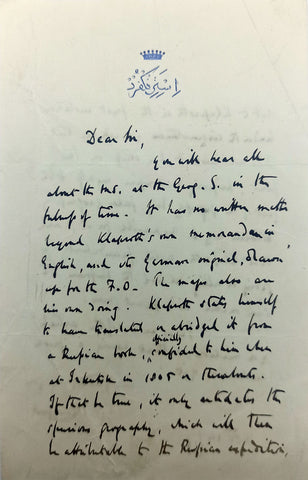 استرنكفرد
Dear Sir,
You will hear all
about the MS. at the Geog. S. in the
fulness of time. It has no written matter
beyond Klaproth's own memorandum in
English, and its German original, drawn
up for the F.O. The maps also are
his own doing. Klaproth states himself
to have translated or abridged it from
officially
a Russian book, confided to him when
at Irkutsk in 1805 or thereabouts.
If that be true, it only antedates the
spurious geography, which will then
be attributable to the Russian expedition,